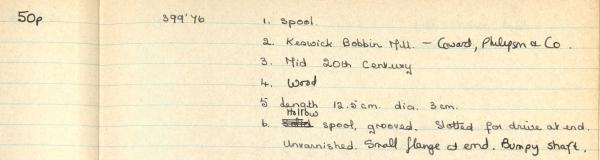 50p 399'76 1. Spool.
2. Keswick Bobbin Mill. - Coward, Philipson & Co.
3. Mid 20th Century
4. Wood
5 Length 12.5cm. dia. 3cm.
Hollow
6. Solid spool, grooved. Slotted for drive at end.
Unvarnished. Small flange at end. Bumpy shaft.